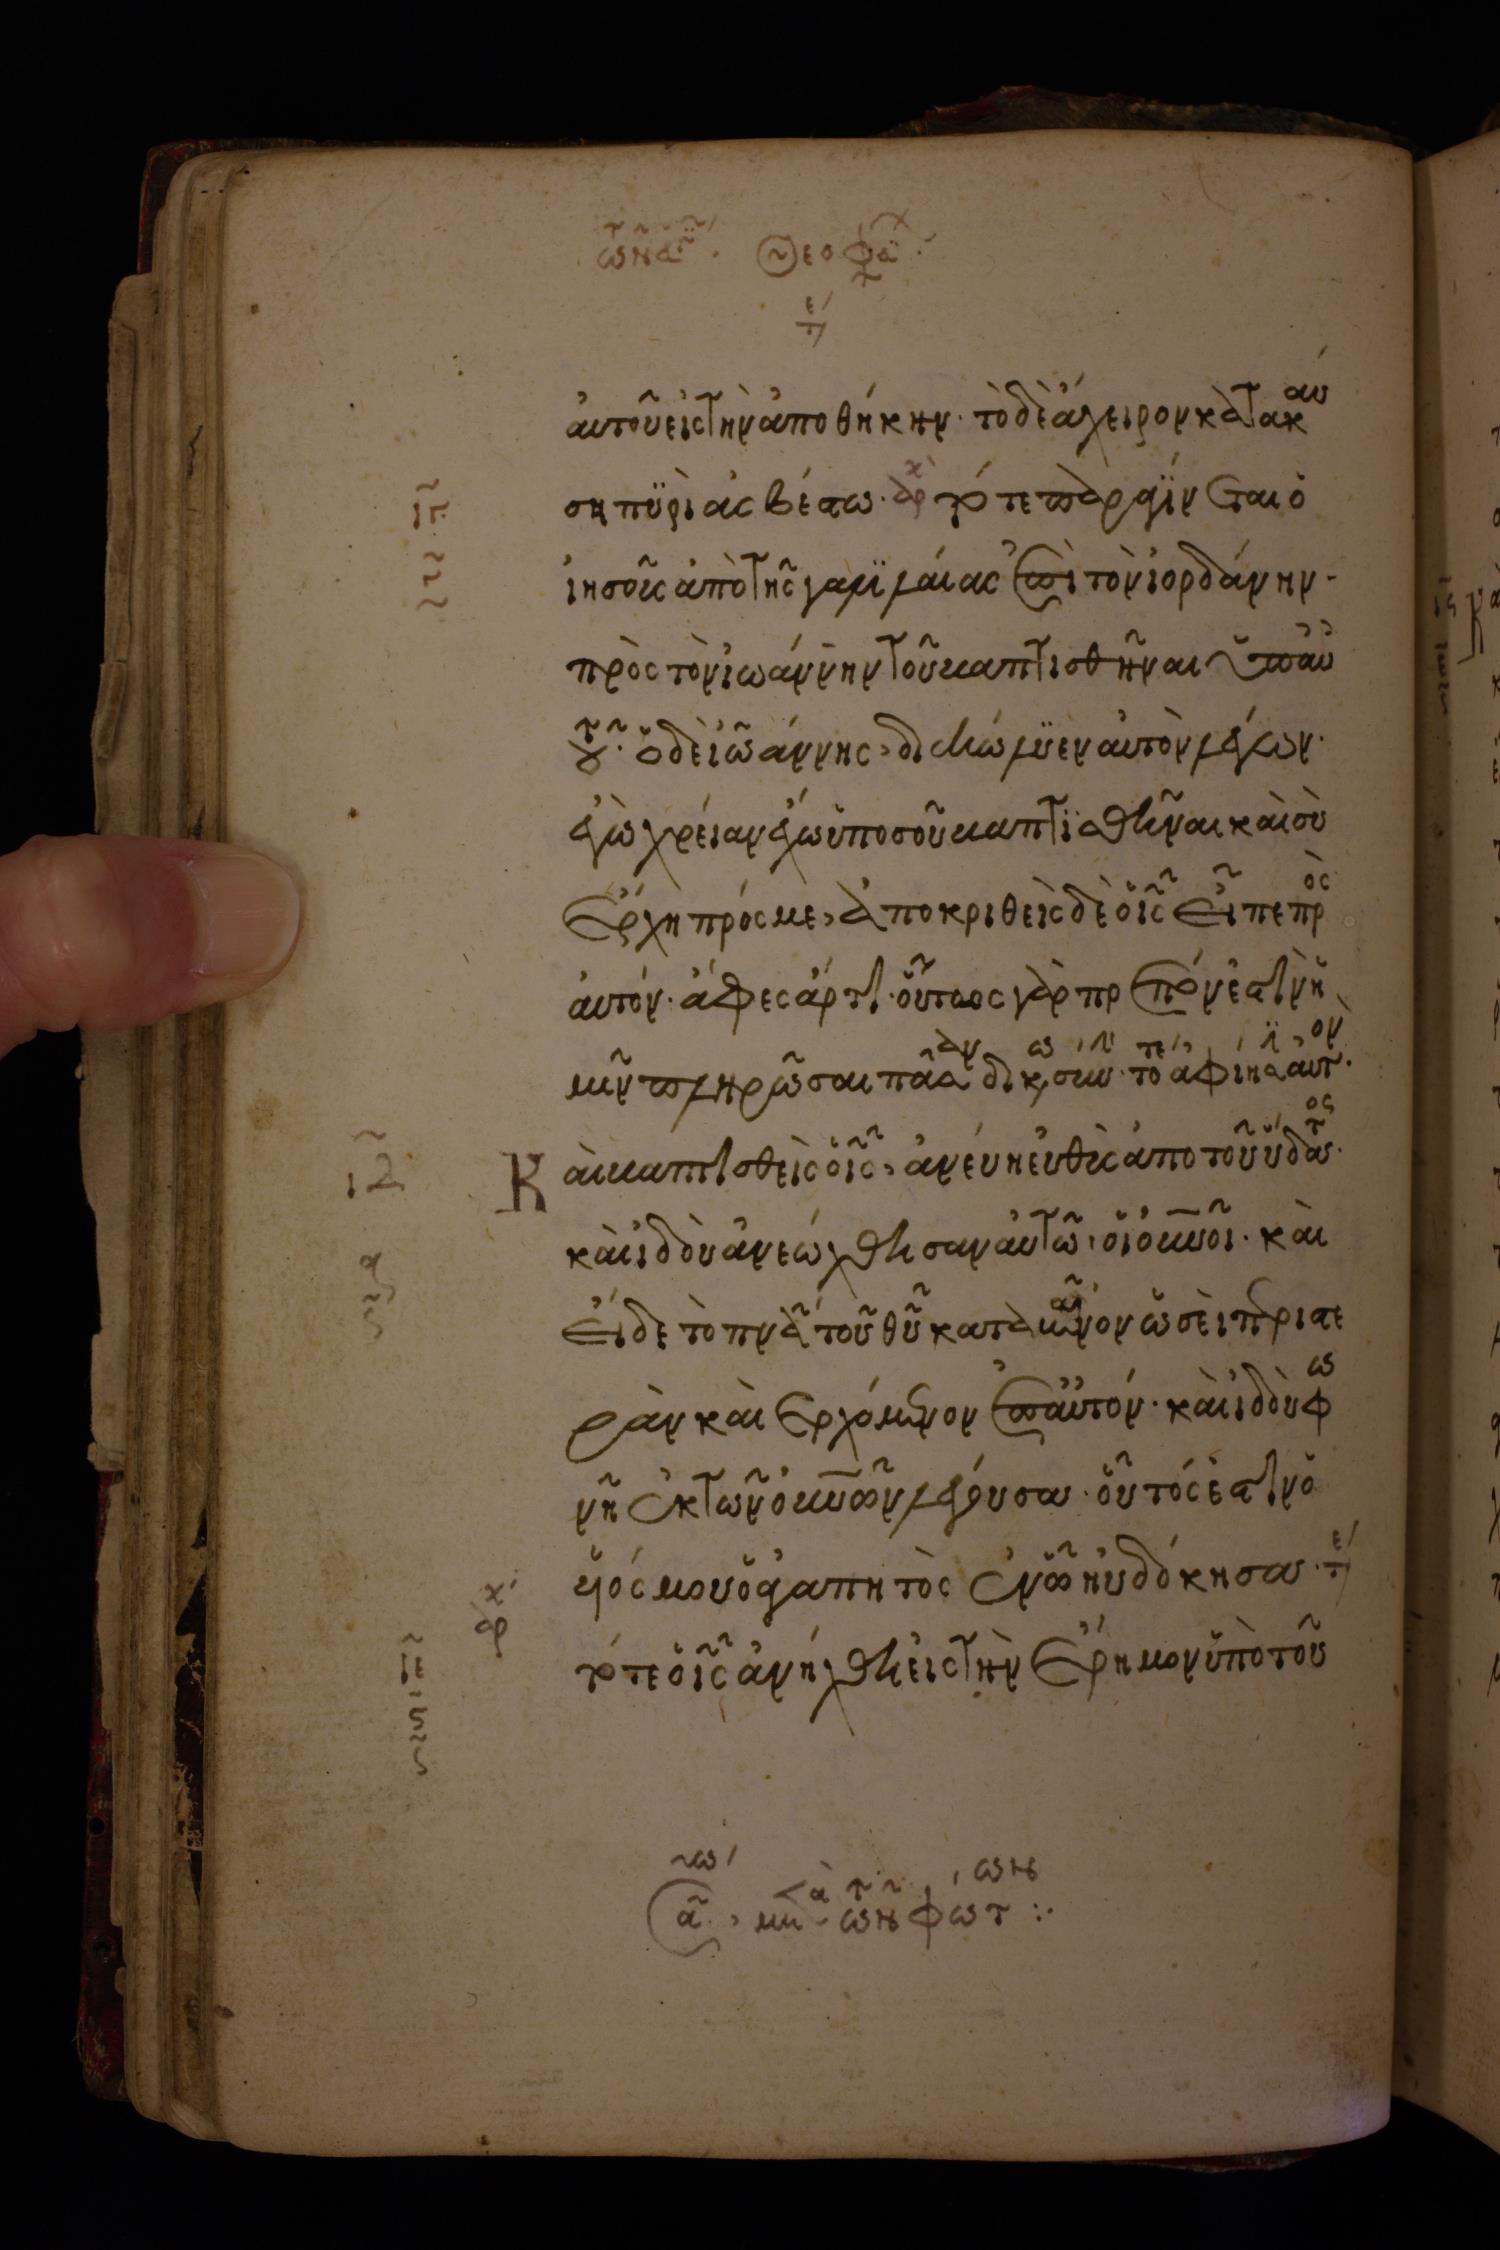 αὐτοῦ εἰς τὴν ἀποθήκην· τὸ δὲ ἄχυρον κατακαύ
σει πυρὶ ἀσβέστω· ἀρχ τότε παραγίνεται ὁ
ἰησοῦς ἀπὸ τῆς γαλιλαίας ἐπὶ τὸν ἰορδάνην·
πρὸς τὸν ἰωάννην τοῦ βαπτισθῆναι ὑπ' αὐ
τοῦ· ὁ δὲ ἰωάννης, διεκώλυεν αὐτὸν λέγων·
ἐγὼ χρείαν ἔχω ὑπὸ σοῦ βαπτισθῆναι καὶ σὺ
ἔρχη πρός με, ἀποκριθεὶς δὲ ὁ ις εἶπε πρὸς
αὐτόν· ἄφες ἄρτι· οὕτως γὰρ πρέπον ἐστὶν ἡ
μῖν πληρῶσαι πᾶσαν δικαιοσύν· τότε ἀφίησιν αὐτόν·
Καὶ βαπτισθεὶς ὁ ις, ἀνέβη εὐθὺς ἀπὸ τοῦ ὕδατος·
καὶ ἰδοὺ ἀνεώχθησαν αὐτῶ, οἱ οὐνοι· καὶ
εἶδε τὸ πνα τοῦ θυ καταβαῖνον ὡσεὶ περιστε
ρὰν καὶ ἐρχόμενον ἐπ' αὐτόν· καὶ ἰδοὺ φω
νὴ ἐκ τῶν οὐνῶν λέγουσα· οὗτός ἐστιν ὁ
υἱός μου ὁ ἀγαπητὸς ἐν ὧ ηὐδόκησα· τε
ἀρχ τότε ὁ ις ἀνήχθη εἰς τὴν ἔρημον ὑπὸ τοῦ